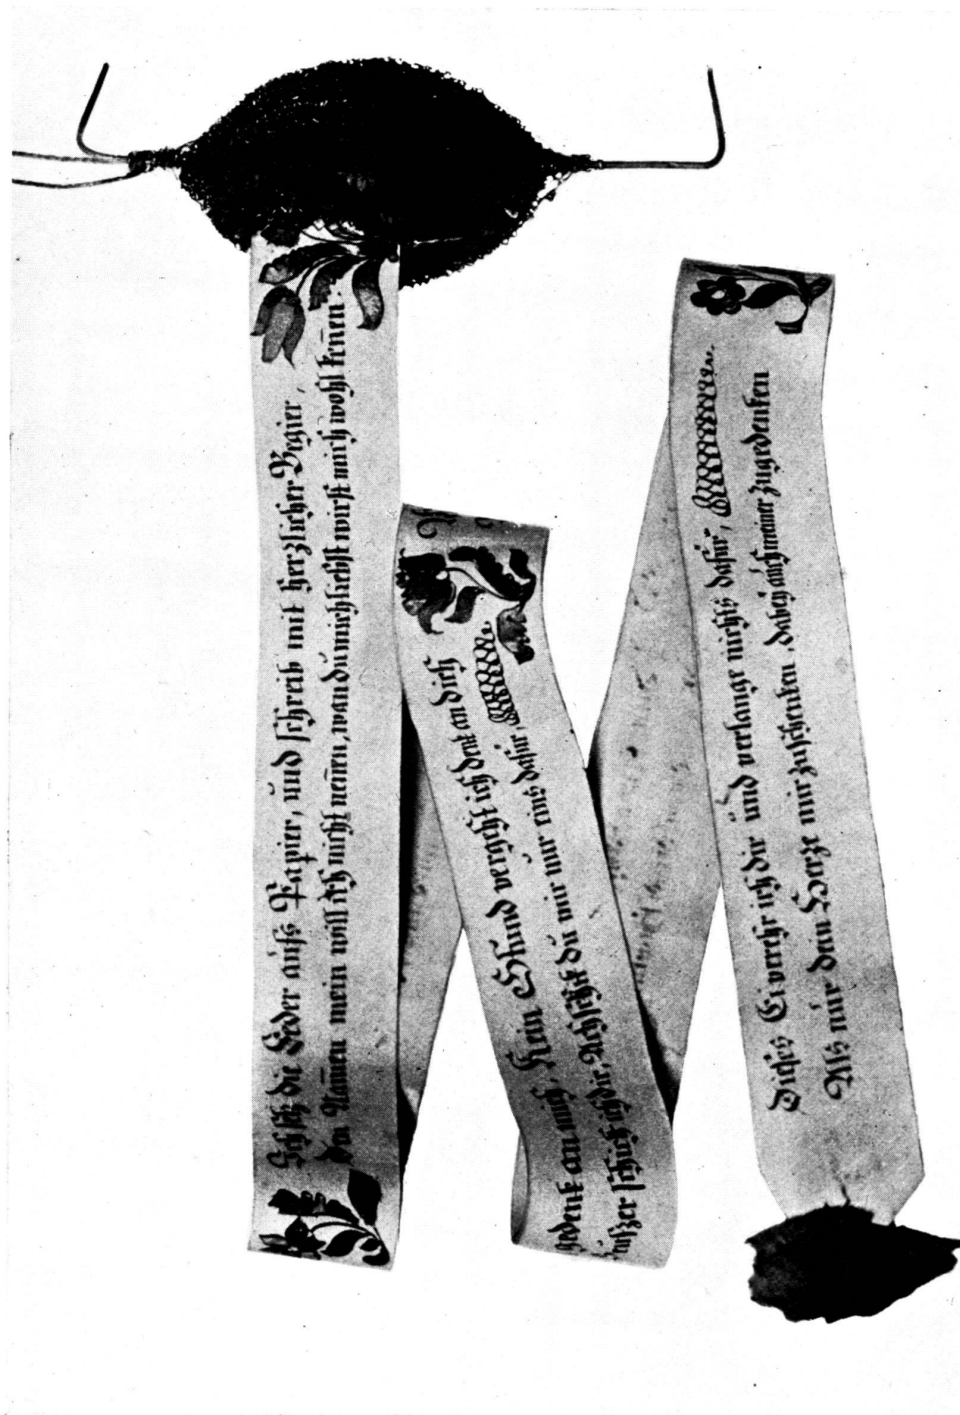 die Feder aufs Papier, und schreib mit herzlicher Begier,
den Nam̄en mein will ich nicht nen̄en, wan du mich liebst wirst mich wohl ken̄en.
gedenk an mich, kein Stund vergeht ich denk an dich
schick ich dir, Ach schick du mir nur eins dafür,
Dieses Ei verehr ich dir und verlange nichts dafür,
Als nur dein Herze mir zuschenken, dabey auch meiner zugedenken